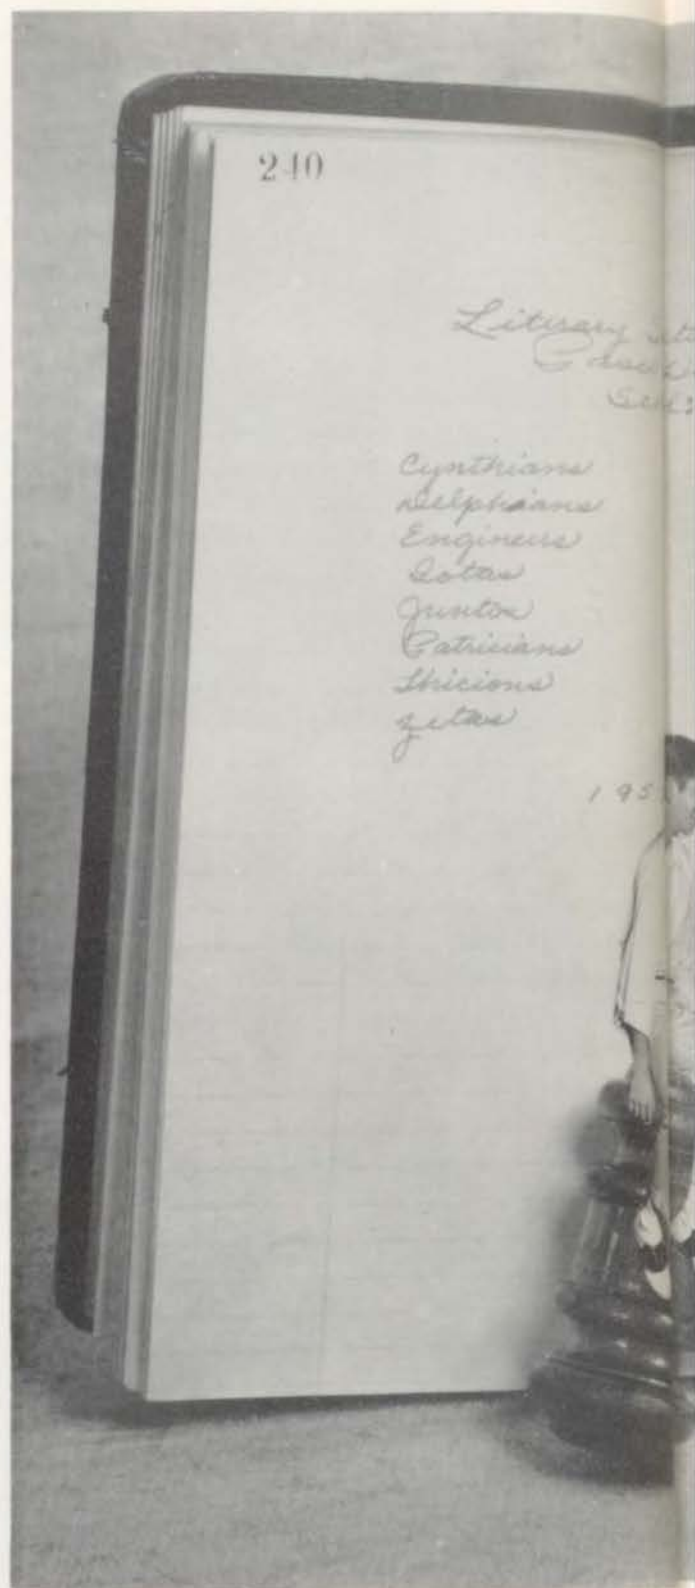 240
Literary
Cynthians
Delphians
Engineers
Iotas
Juntos
Patricians
Thicions
Zetas
195